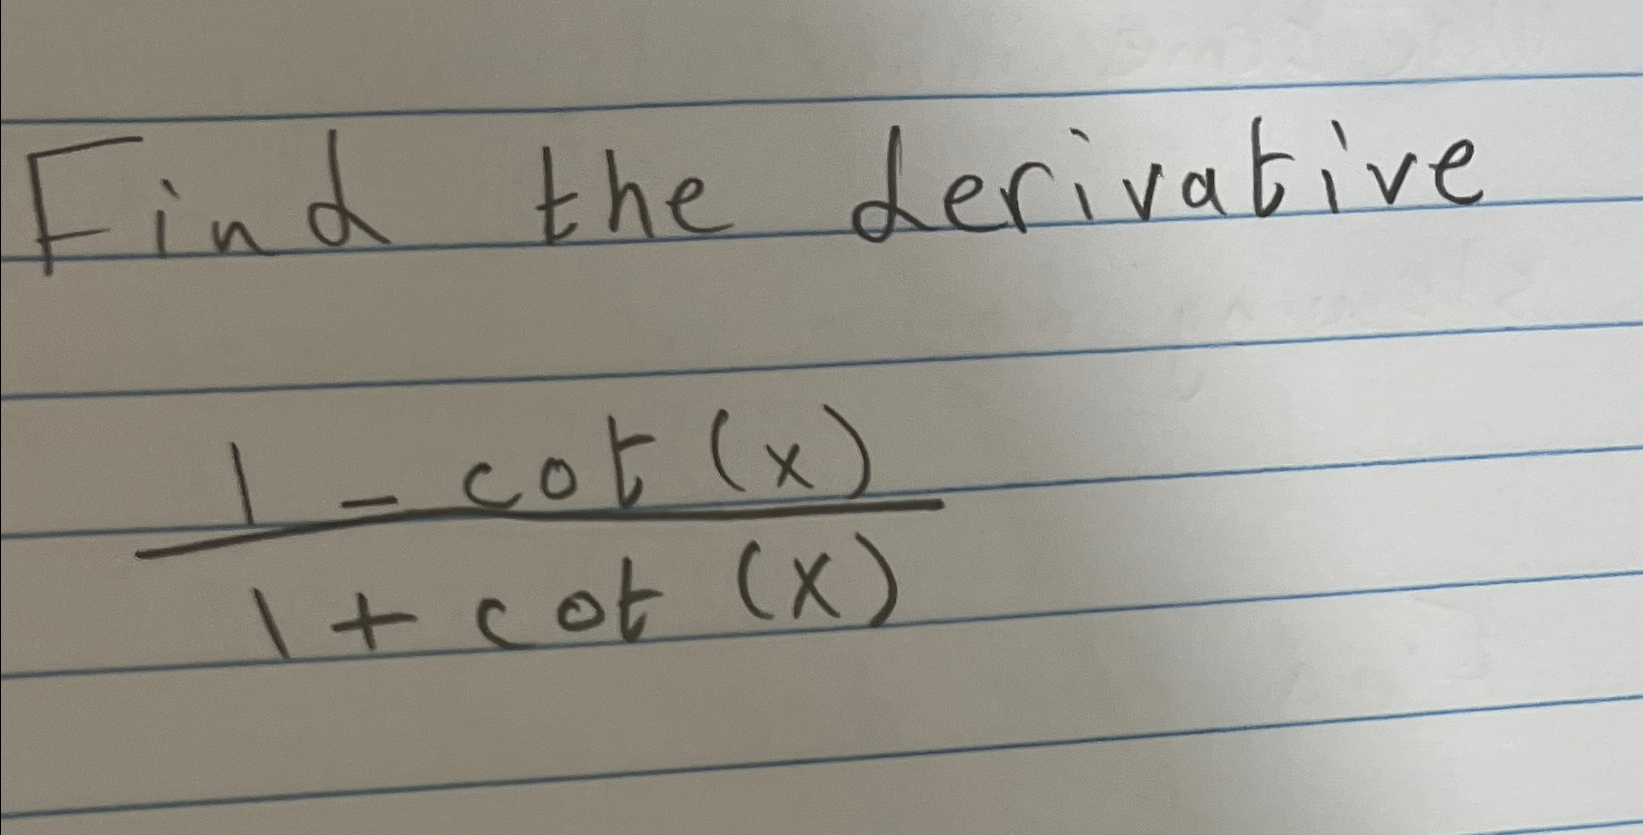 Find the derivative
1 - cot (x)
1 + cot (x)